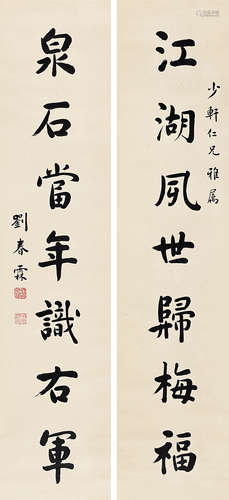 少軒仁兄雅属
江湖夙世歸梅福
泉石當年識右軍
劉春霖